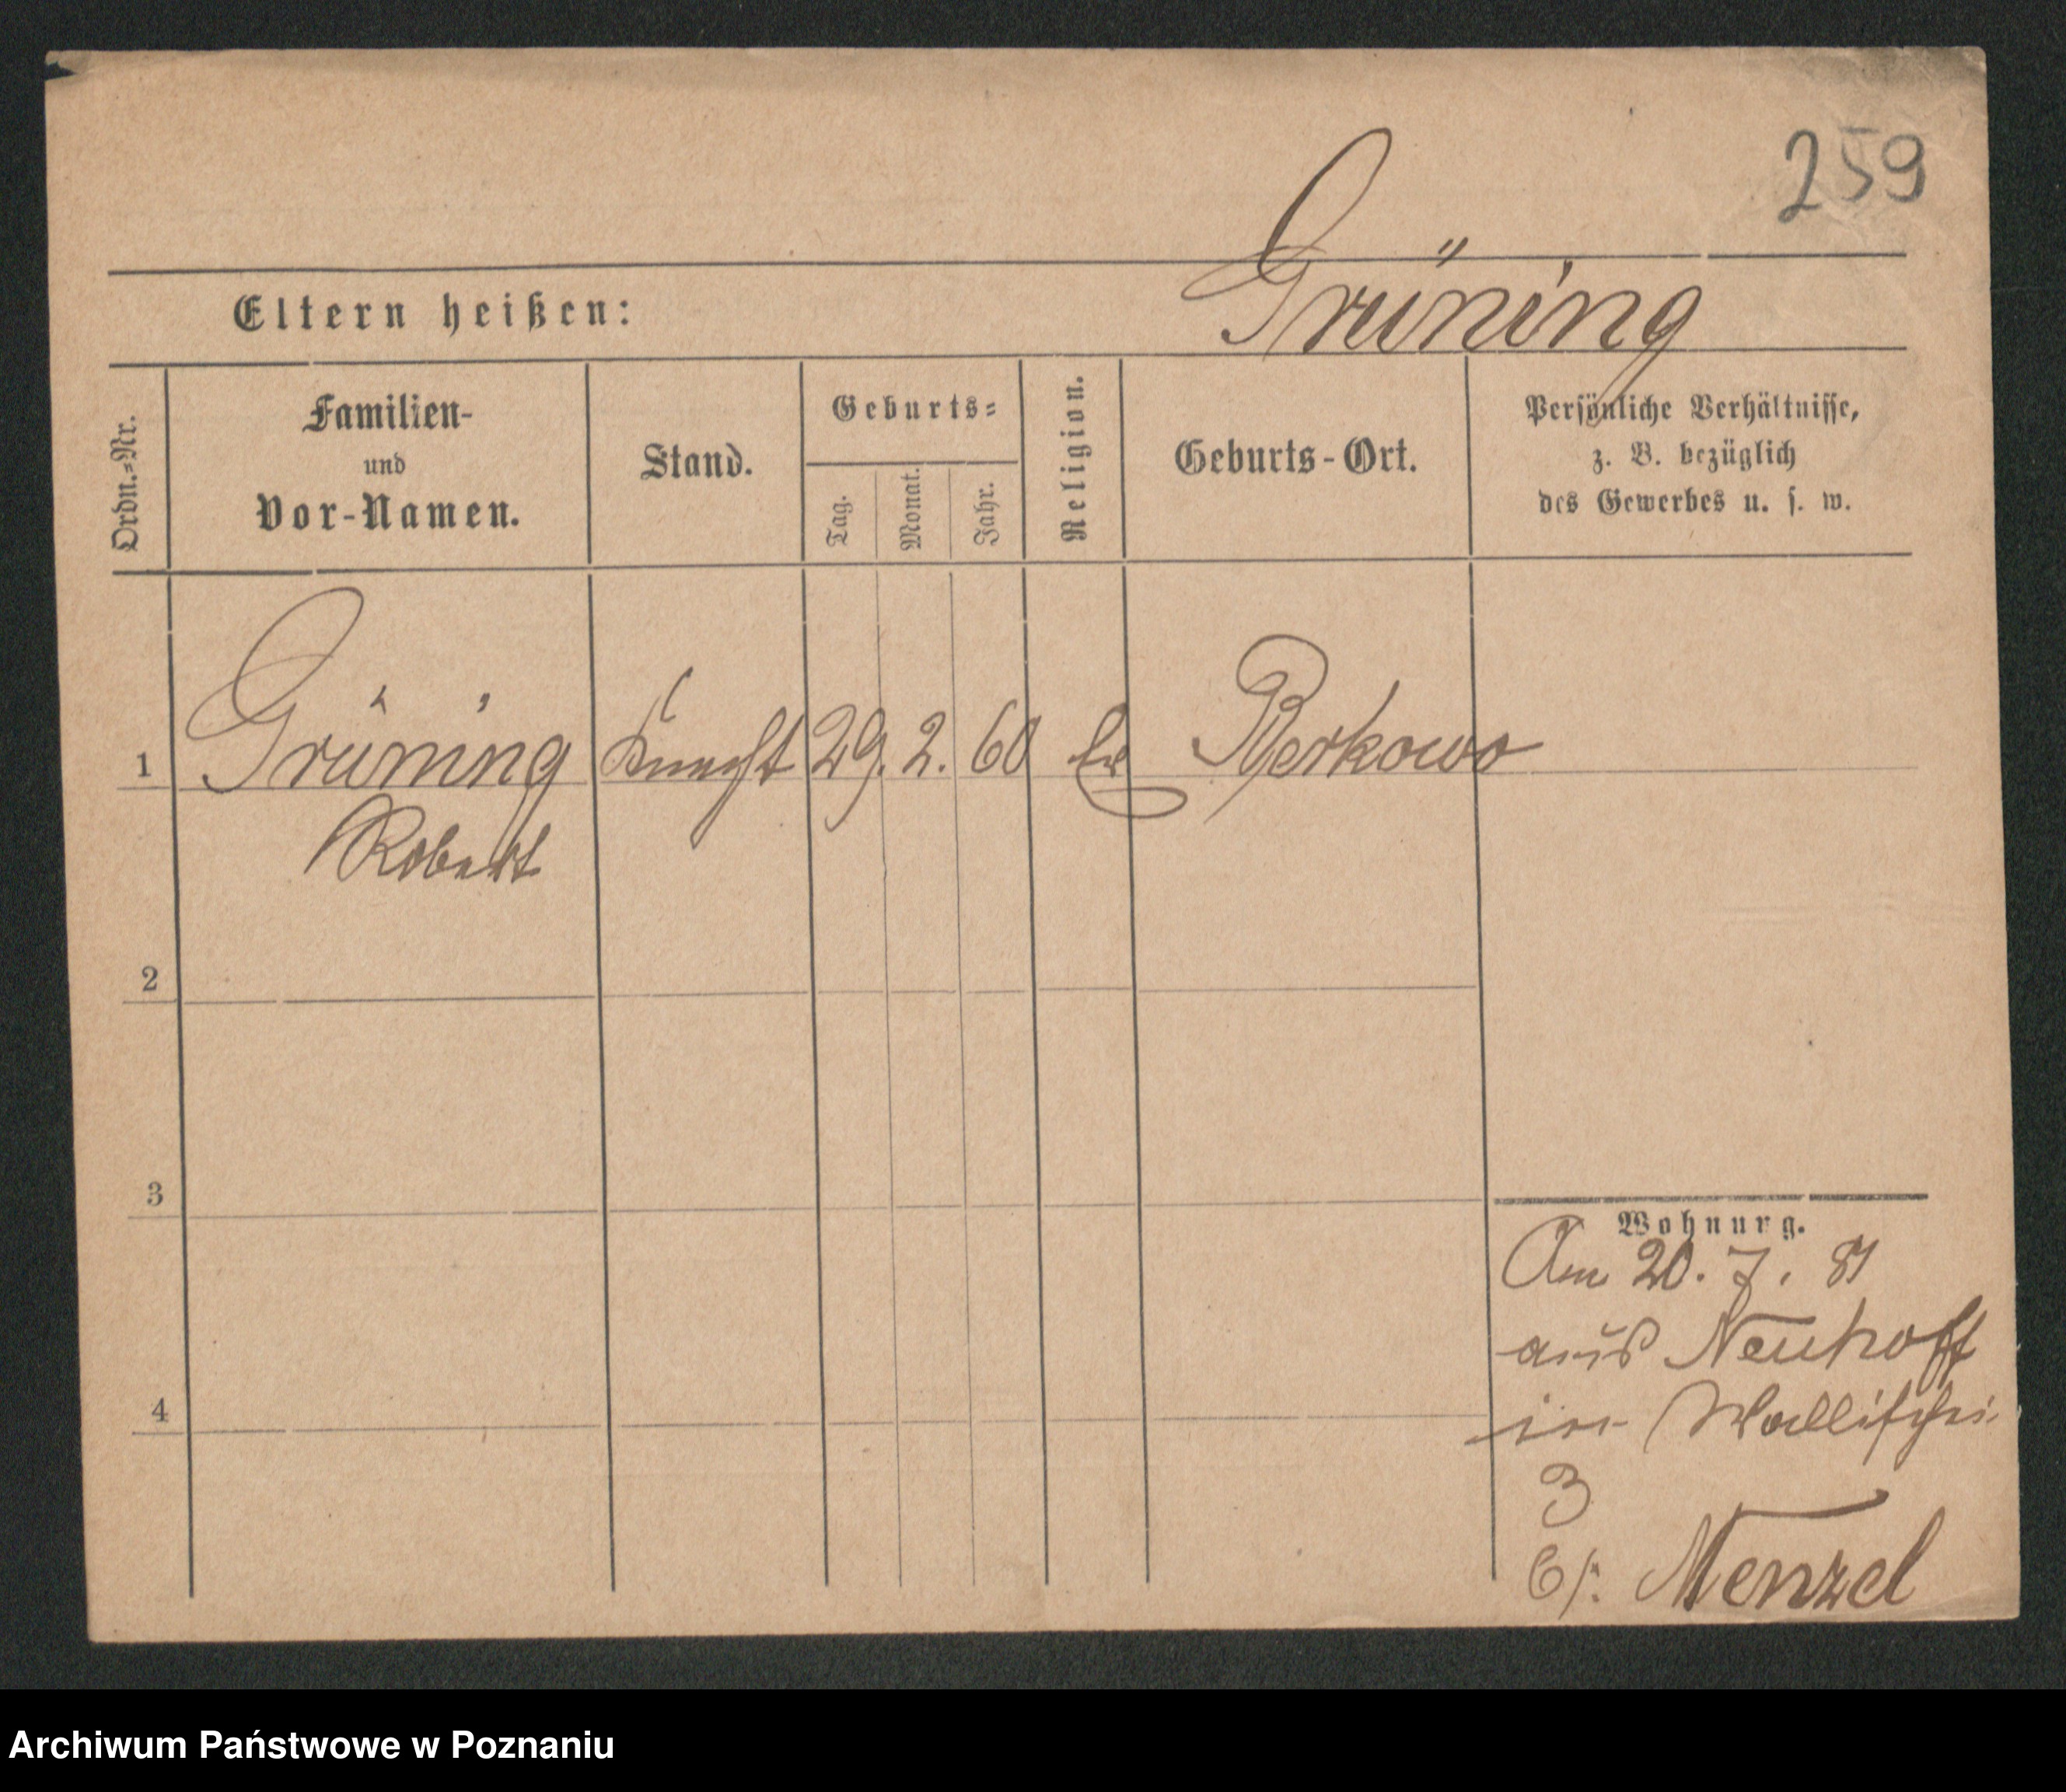 259
Grüning
Eltern heißen:
Ordn.-Nr.
Familien-
und
Vor-Namen.
Stand.
Geburts-
Tag.
Monat.
Jahr.
Religion.
Geburts-Ort.
Persönliche Verhältnisse,
z. B. bezüglich
des Gewerbes u. s. w.
1 Grüning Knecht 29. 2. 60 Berkowo
Robert
2
3
4
Wohnung.
Am 20. 7. 81
aus Neuhoff
in Wallischei
3
b/: Menzel
Archiwum Państwowe w Poznaniu